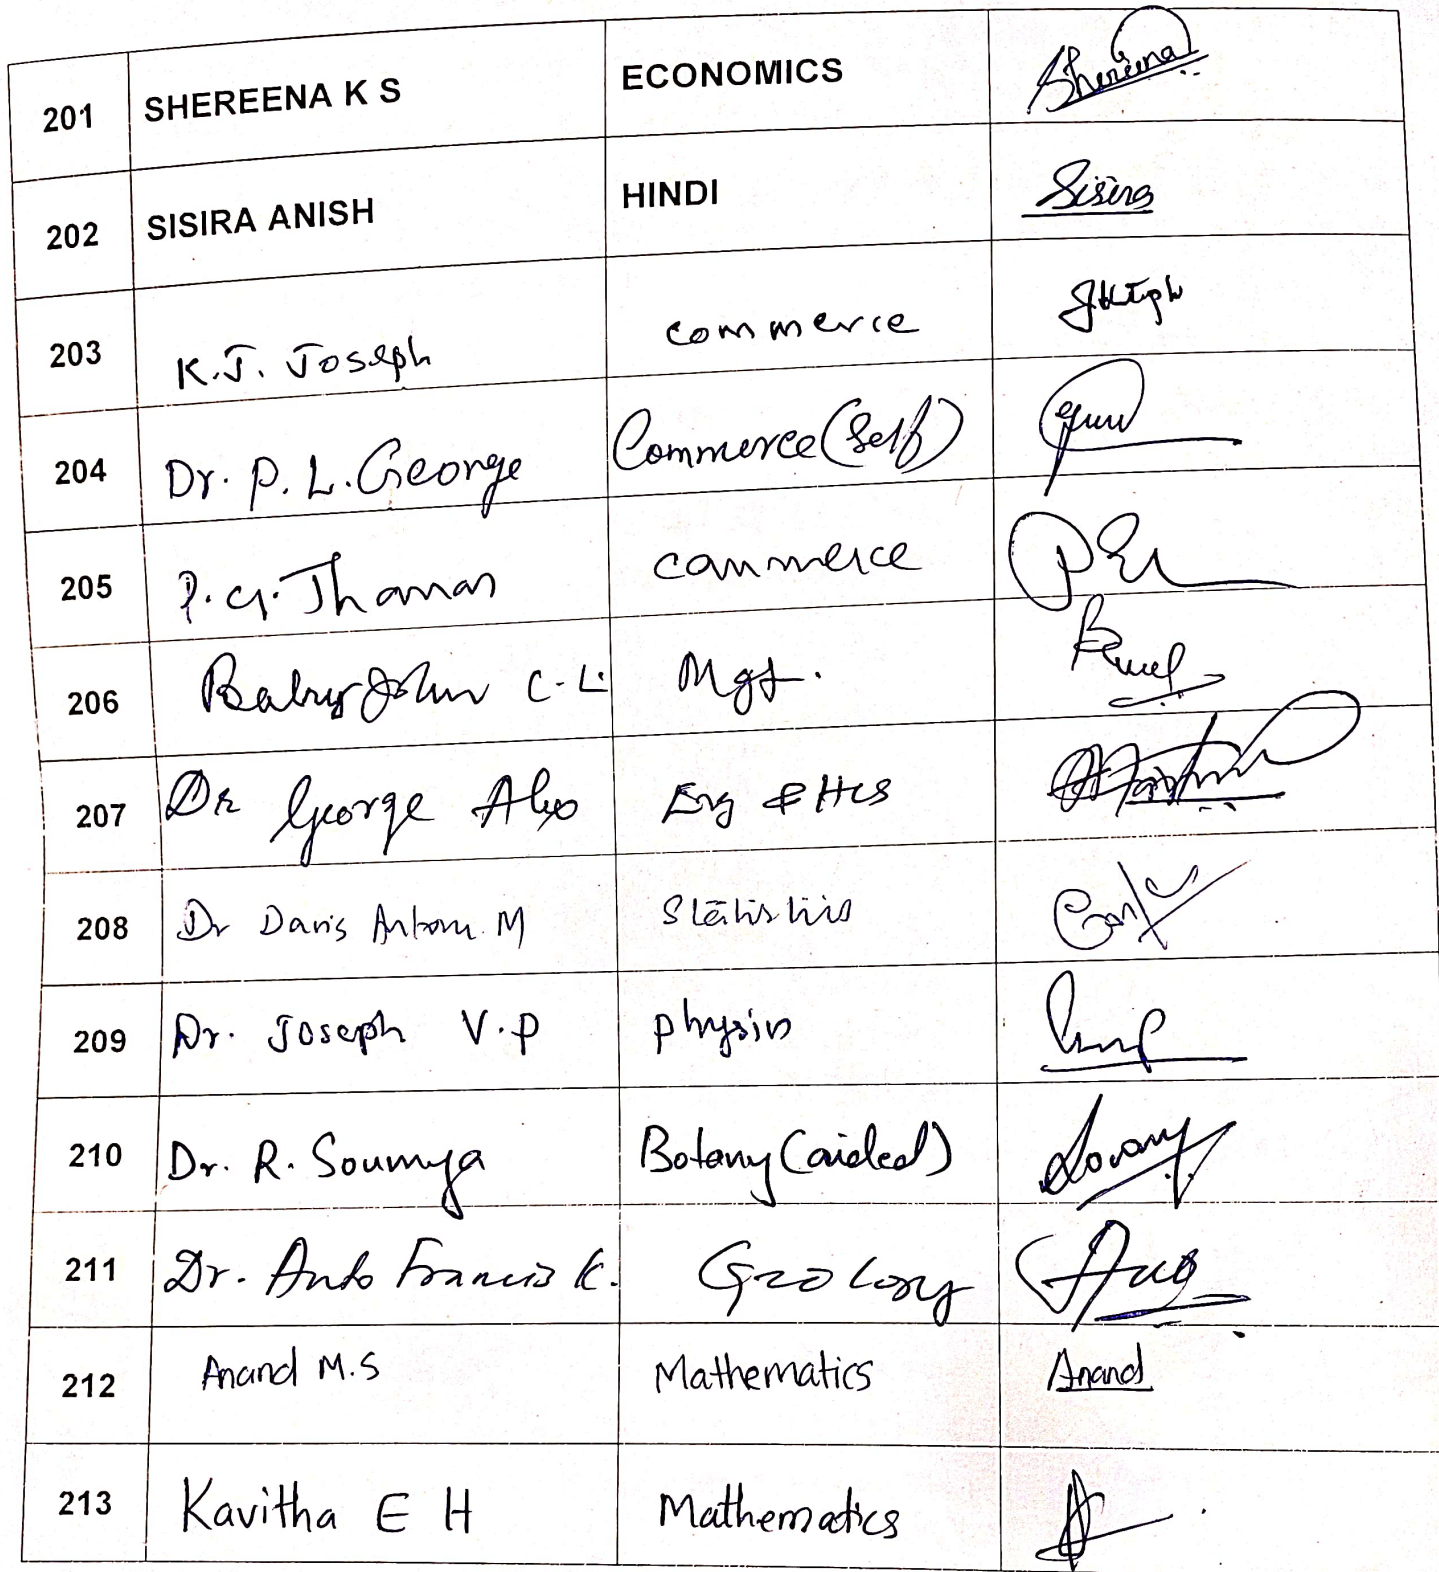 201 SHEREENA K S ECONOMICS Shereena
202 SISIRA ANISH HINDI Sisira
203 K.J. Joseph commerce
204 Dr. P. L. George Commerce (Self)
205 P. G. Thomas commerce
206 Baby John C. L. Mgt.
207 Dr George Alex Eng & Hcs
208 Dr Davis Antony M Statistics
209 Dr. Joseph V.P physics
210 Dr. R. Soumya Botany (aided)
211 Dr. Anto Francis K. Geology
212 Anand M.S Mathematics Anand
213 Kavitha E H Mathematics